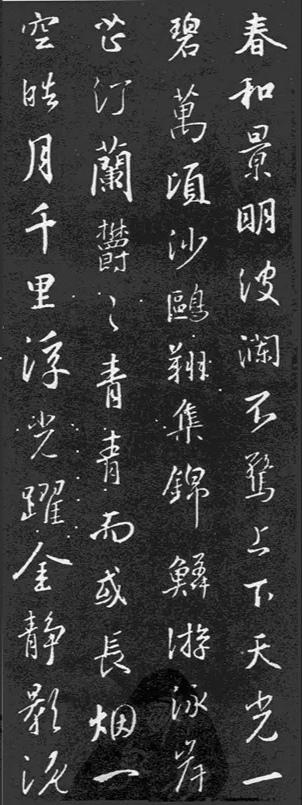 春和景明波瀾不驚上下天光一
碧萬頃沙鷗翔集錦鱗游泳岸
芷汀蘭鬱〻青青而或長烟一
空皓月千里浮光躍金靜影沉